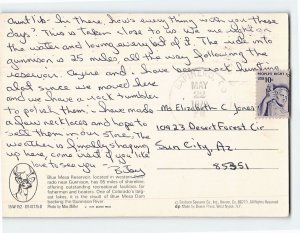 Aunt Lib - Hi There, how's everything with you these
days? This is Taken close to us. We are right on
the water and loving every bit of it. The ride into
gunnison is 25 miles all the way following the
reservoir. Wayne and I have been rock hunting
a lot since we moved here
and we have a rock tumbler
to polish them. I have made
a few necklaces and hope to
sell them in our store. The
weather is finally shaping
up here, come visit if you like
love to see you -
MAY
PEOPLE'S RIGHT
10c
Ms Elizabeth C Jones
10923 Desert Forest Cir
Sun City, Az.
85351
Blue Mesa Reservoir, located in western Colo-
rado near Gunnison, has 95 miles of shoreline,
offering outstanding recreational facilities for
fishermen and boaters. One of Colorado's larg-
est lakes, it is the result of Blue Mesa Dam
backing the Gunnison River.
Photo by Max Miller